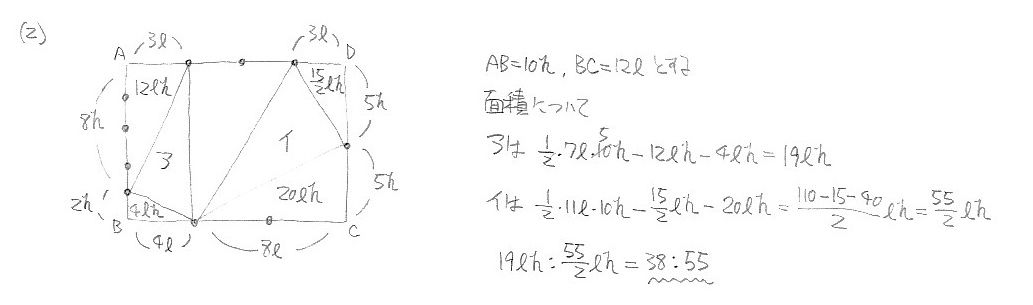 (2)
3l 3l
A D
12lh 15/2 lh
8h 5h
ア イ
5h
2h 4lh 20lh
B C
4l 8l
AB=10h, BC=12l とする
面積について
アは 1/2・7l・10h－12lh－4lh＝19lh
5
イは 1/2・11l・10h－15/2 lh－20lh＝(110－15－40)/2 lh＝55/2 lh
19lh:55/2 lh＝38:55